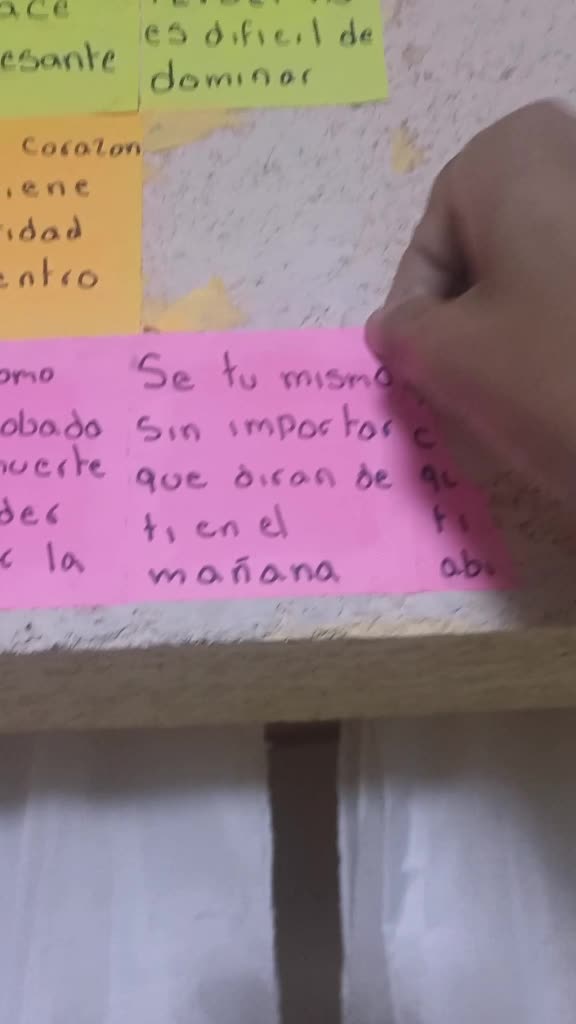 ace
esante
es dificil de
dominar
corazon
iene
idad
entro
omo
obado
uerte
des
la
Se tu mismo
sin importar
que diran de
ti en el
mañana
ti
ab